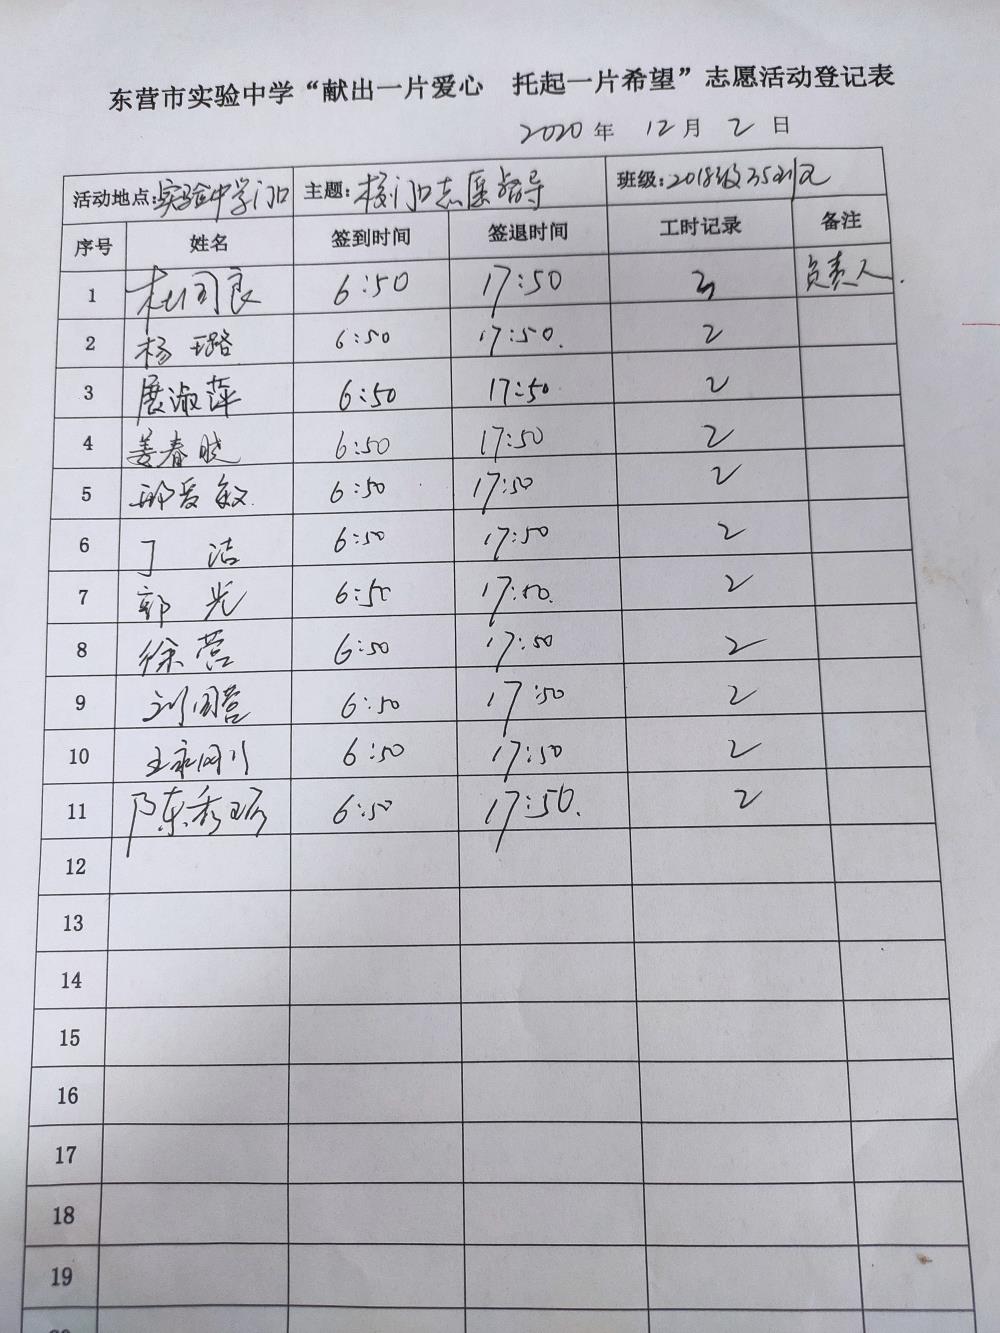 东营市实验中学“献出一片爱心 托起一片希望”志愿活动登记表
2020年 12月 2日
活动地点:实验中学门口 主题:校门口志愿指导 班级:2018级35班
序号 姓名 签到时间 签退时间 工时记录 备注
1 杜司良 6:50 17:50 3 负责人.
2 杨璐 6:50 17:50. 2
3 展淑萍 6:50 17:50 2
4 姜春晓 6:50 17:50 2
5 邢爱敏 6:50 17:50 2
6 丁洁 6:50 17:50 2
7 郭光 6:50 17:50. 2
8 徐营 6:50 17:50 2
9 刘国营 6:50 17:50 2
10 王永网川 6:50 17:50 2
11 陈秀 6:50 17:50. 2
12
13
14
15
16
17
18
19